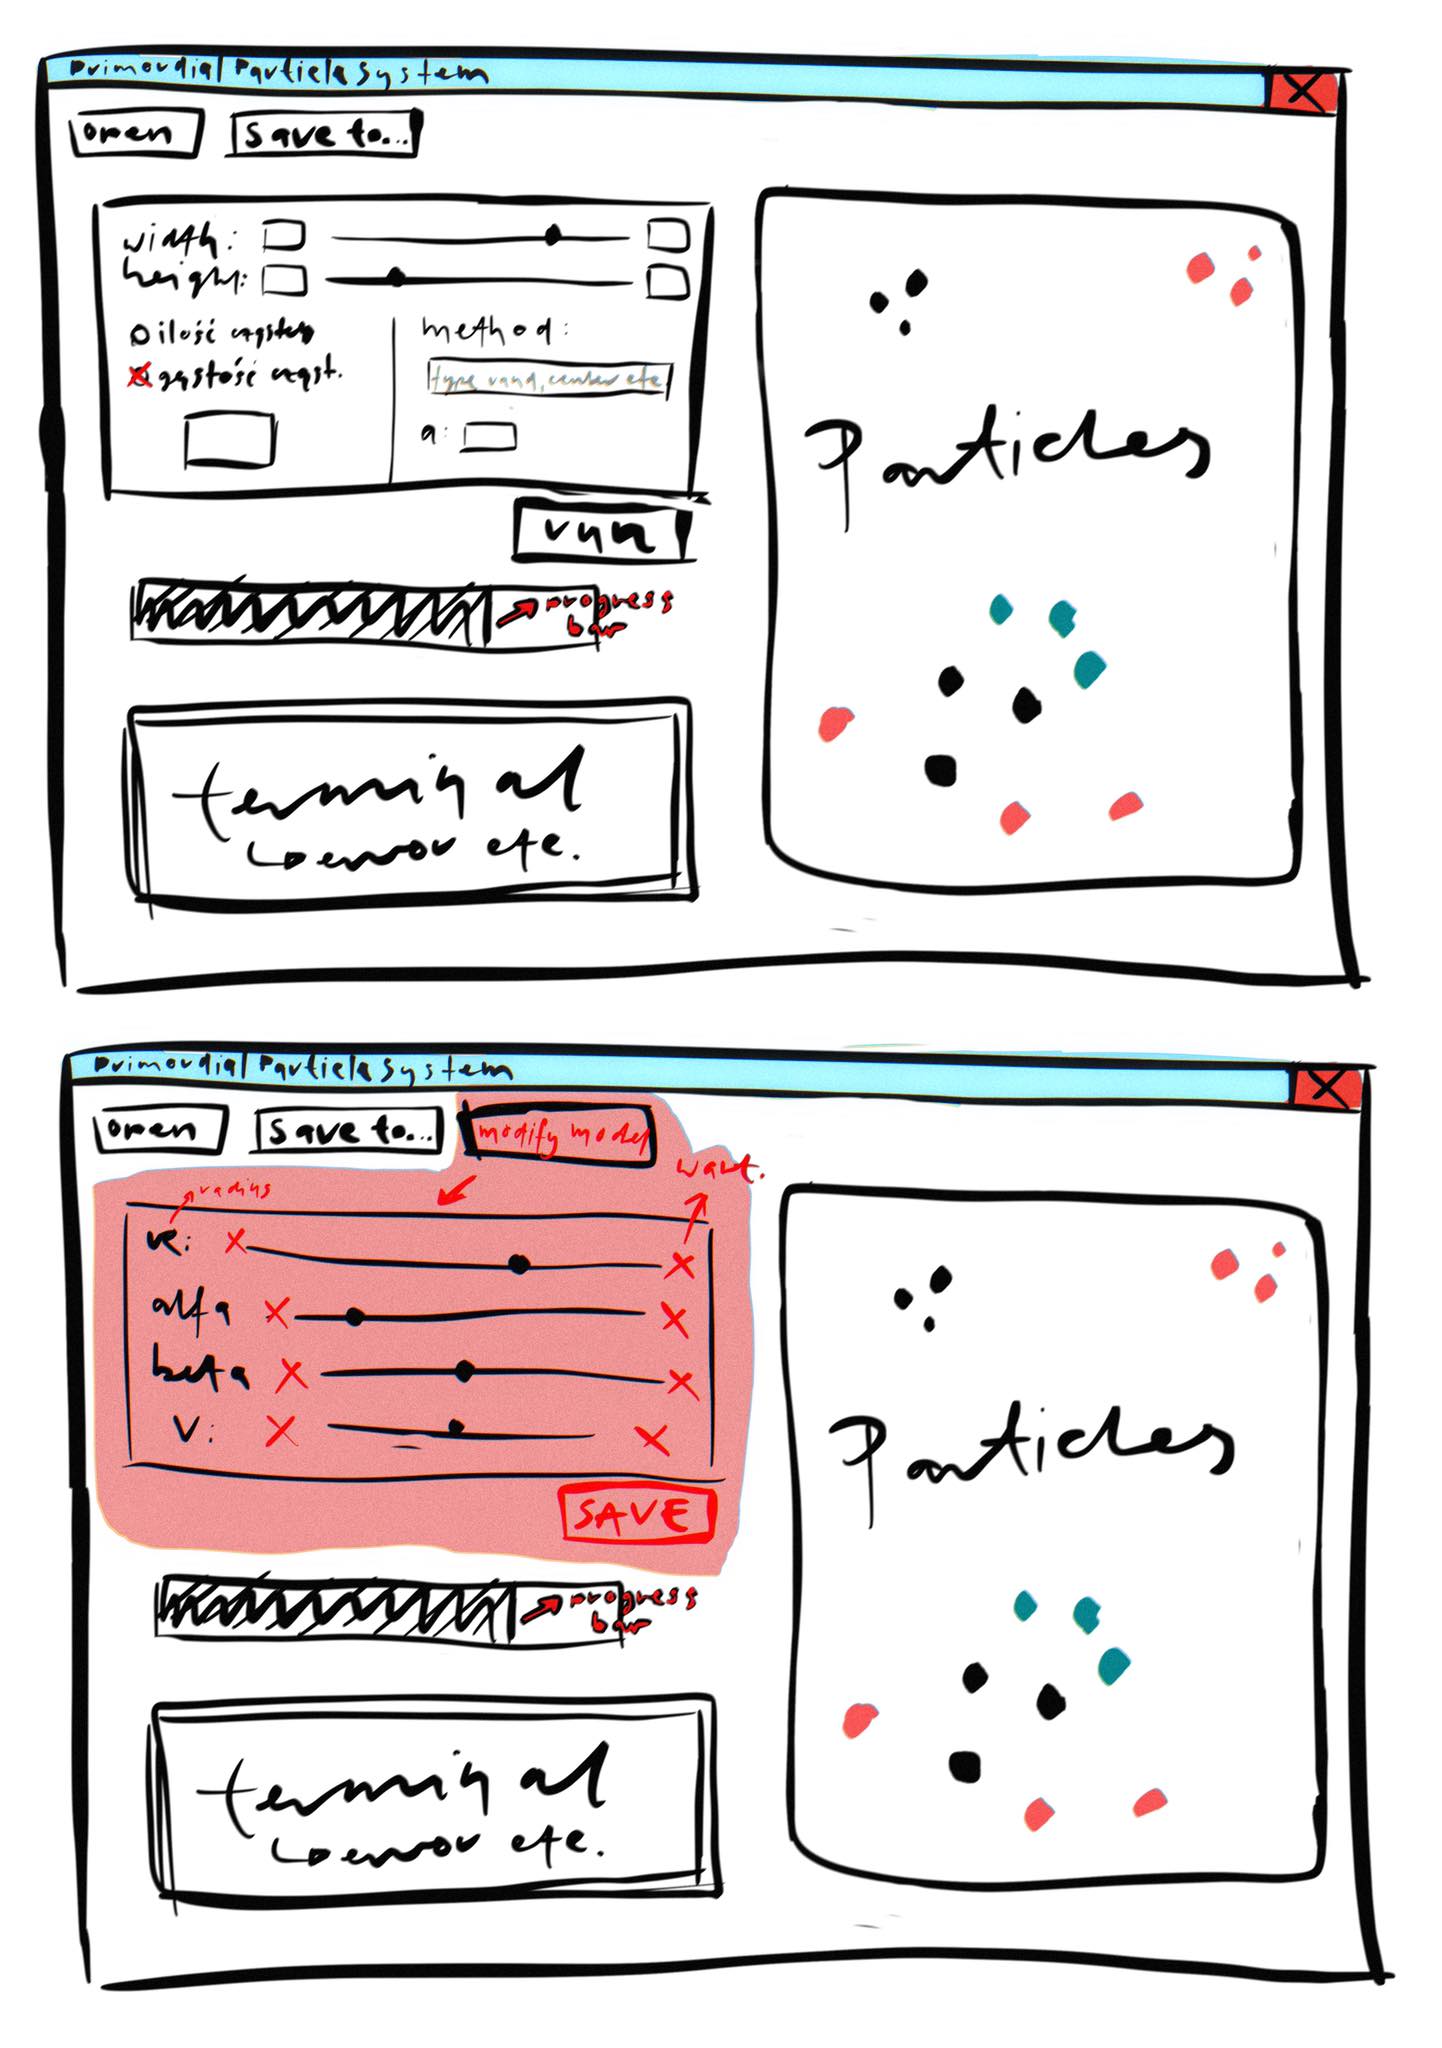 Primordial Particle System
X
open
save to...
width:
height:
ilość cząstek
gęstość cząst.
method:
type rand, center etc.
a:
run
progress
bar
terminal
error etc.
Particles
Primordial Particle System
X
open
save to...
modify model
radius
wart.
r:
alfa
beta
V:
SAVE
progress
bar
terminal
error etc.
Particles